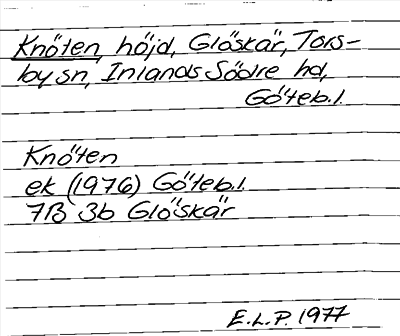 Knöten, höjd, Glöskär, Tors-
by sn, Inlands Södre hd,
Göteb.l.
Knöten
ek (1976) Göteb.l.
7B 3b Glöskär
E.L.P. 1977